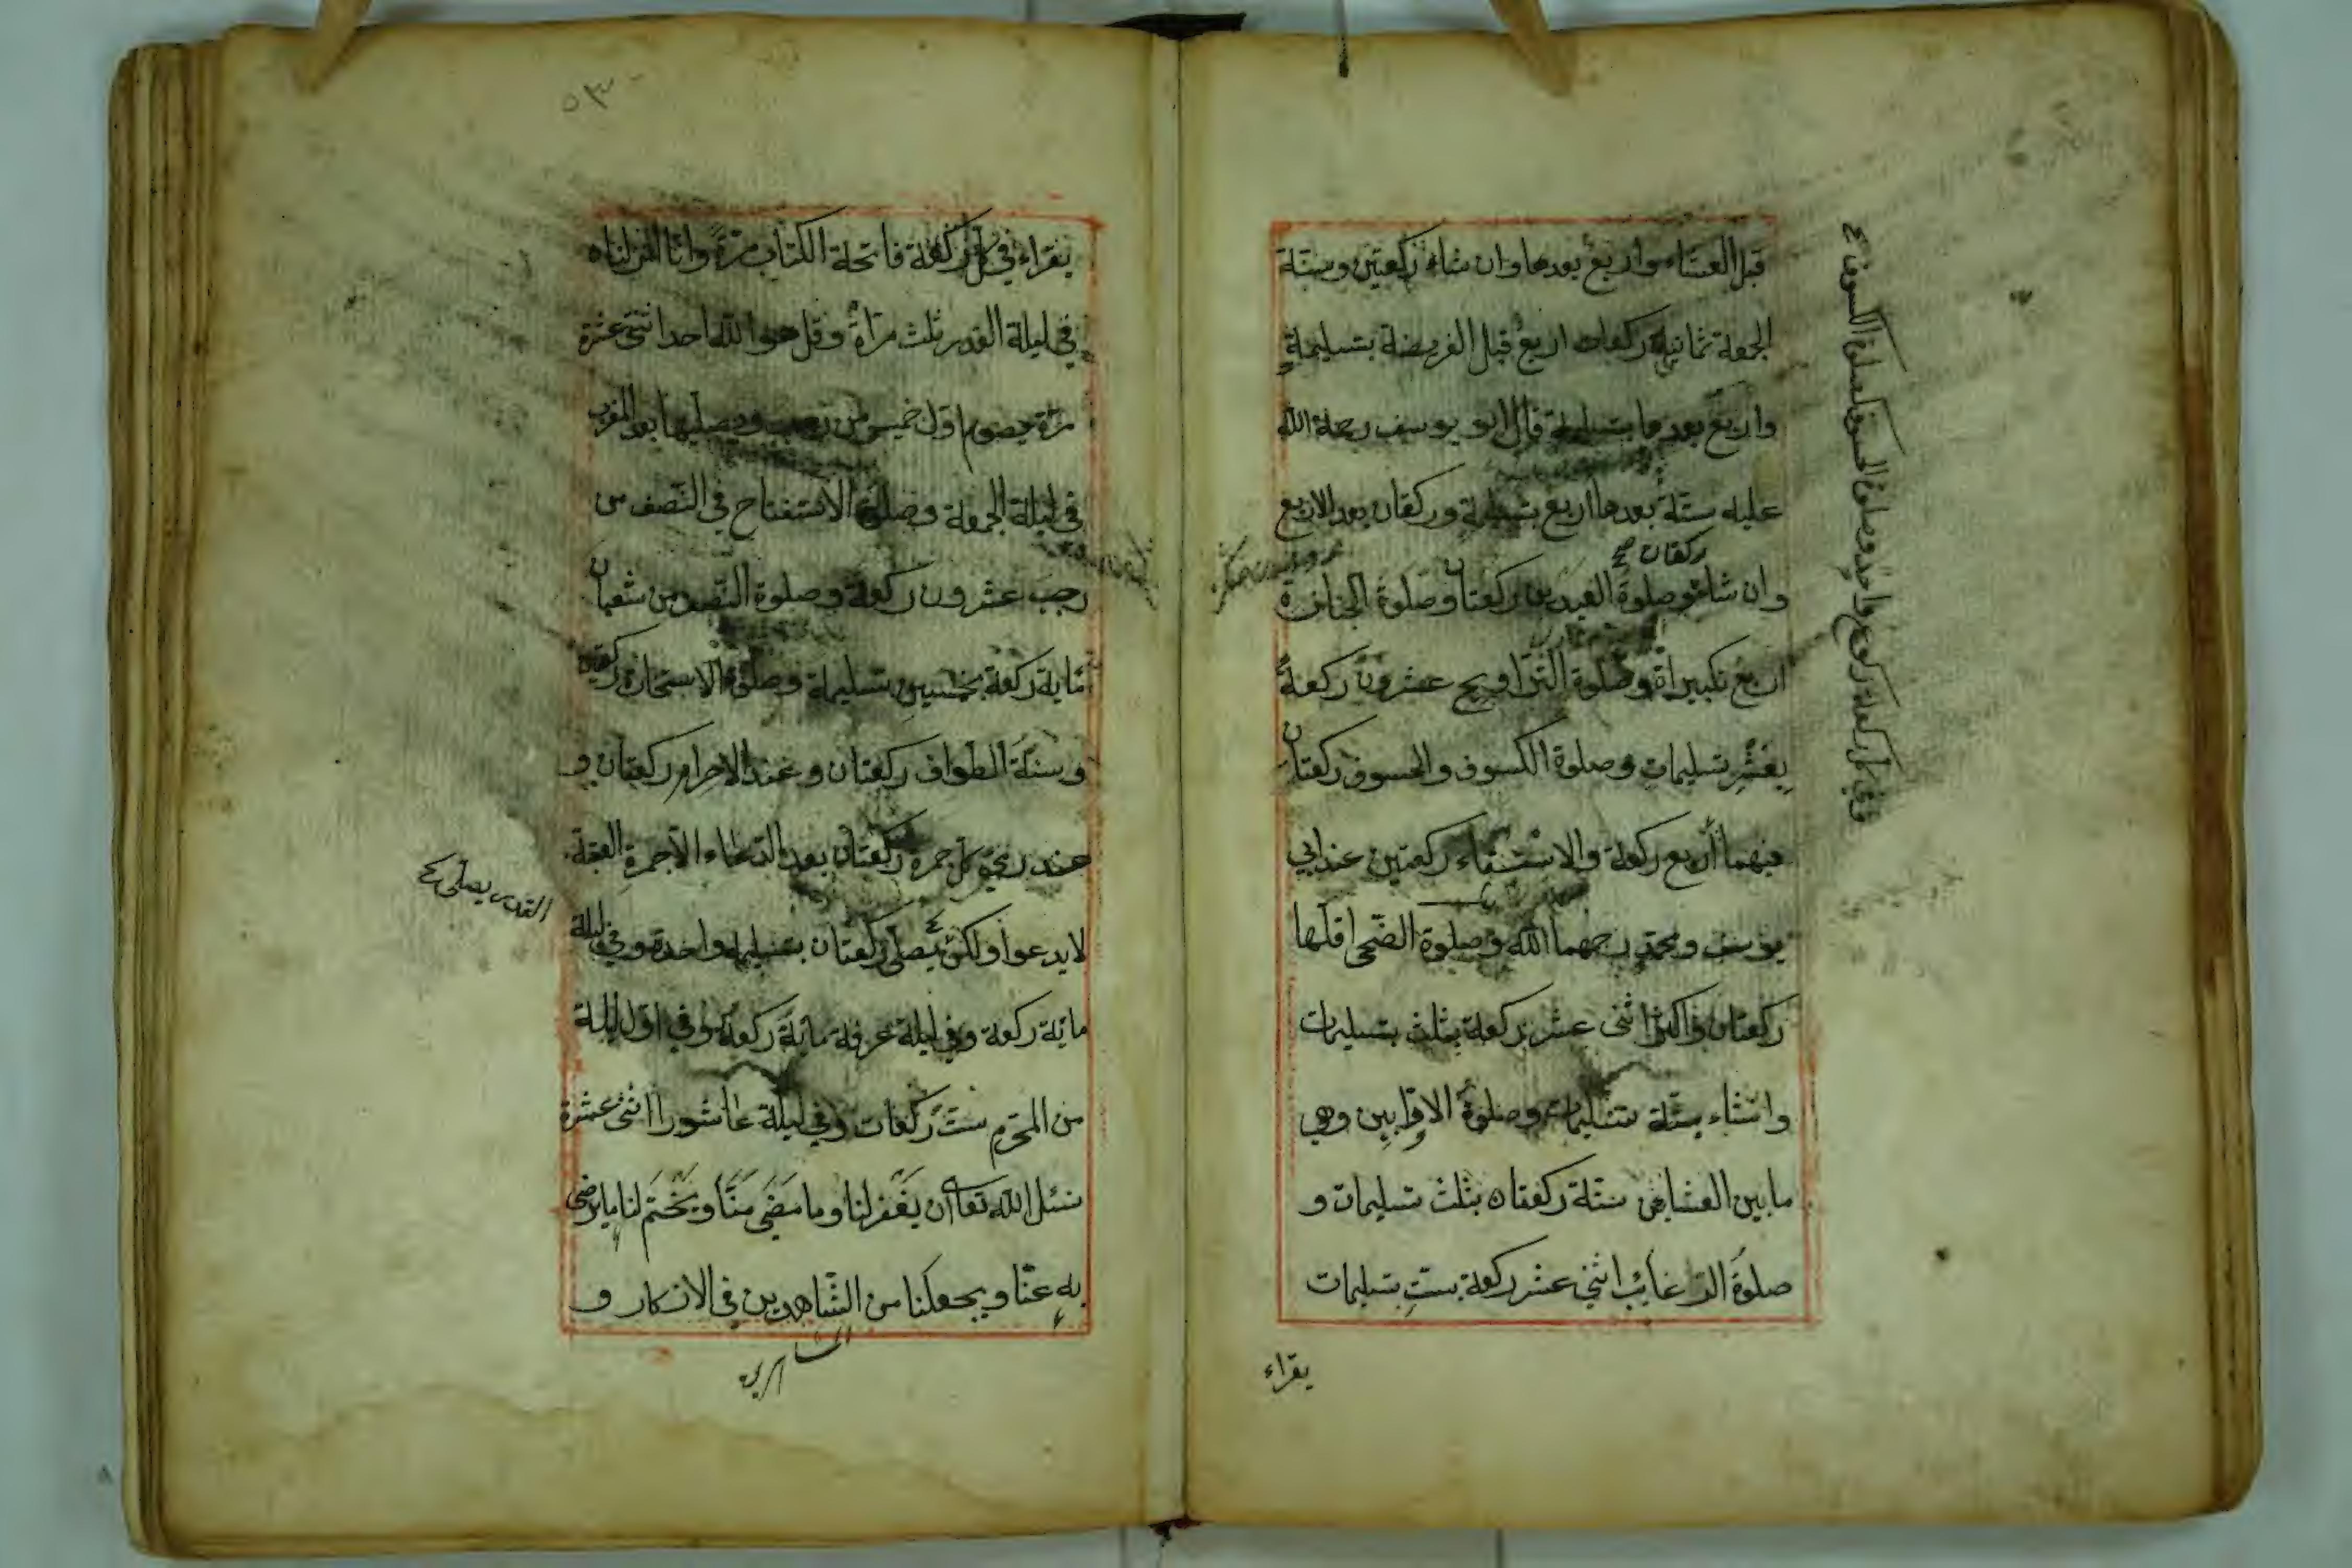 قبل العشاء واربع بعدها وان شاء ركعتين وسنة
الجمعة ثمانية ركعات اربع قبل الفريضة بتسليمة
واربع بعدها بتسليمة قال ابو يوسف رحمة الله
عليه ستة بعدها اربع بتسليمة وركعتان بعد الاربع
ركعتان صح
وان شاء وصلوة العيدين ركعتا وصلوة الجنازة
اربع تكبيراة وصلوة التراويح عشرون ركعة
بعشر تسليمات وصلوة الكسوف والخسوف ركعتان
فيهما اربع ركعة والاستسقاء ركعتين عند ابي
يوسف ومحمد رحمهما الله وصلوة الضحى اقلها
ركعتان واكثر اثنى عشر ركعة بثلث تسليمات
وانشاء بستة تسليمات وصلوة الاوابين وهي
ما بين العشاهى ستة ركعتاه بثلث تسليمات و
صلوة الرغائب اثنى عشر ركعة بست تسليمات
يقراء
وفي كل ركعة ركوع واحد وصلوة الخسوف كصلوة الكسوف صح
٥٣
يقراء في كل ركعة فاتحة الكتاب مرة وانا انزلناه
في ليلة القدر ثلث مراة وقل هو الله احد اثنى عشرة
مرة يصوم اول خميس من رجب ويصليها بعد المغرب
في ليلة الجمعة وصلوة الاستفتاح في النصف من
رجب عشرون ركعة وصلوة النصف من شعبان
مائة ركعة بخمسين تسليمة وصلوة الاستخارة ركعتين
وسنة الطواف ركعتان وعند الاحرام ركعتان و
عند رمي كل جمرة ركعتان بعد الدعاء الا جمرة العقبة
لا يدعوا ولكن يصلى ركعتان بتسليمة واحدة وفي ليلة
القدر يصلى صح
مائة ركعة وفي ليلة عرفة مائة ركعة وفي اول ليلة
من المحرم ست ركعات وفي ليلة عاشورا اثنى عشرة
نسئل الله تعالى ان يغفر لنا وما مضى منا ويختم لنا ما يرضى
به عنا ويجعلنا من الشاهدين في الانكار و